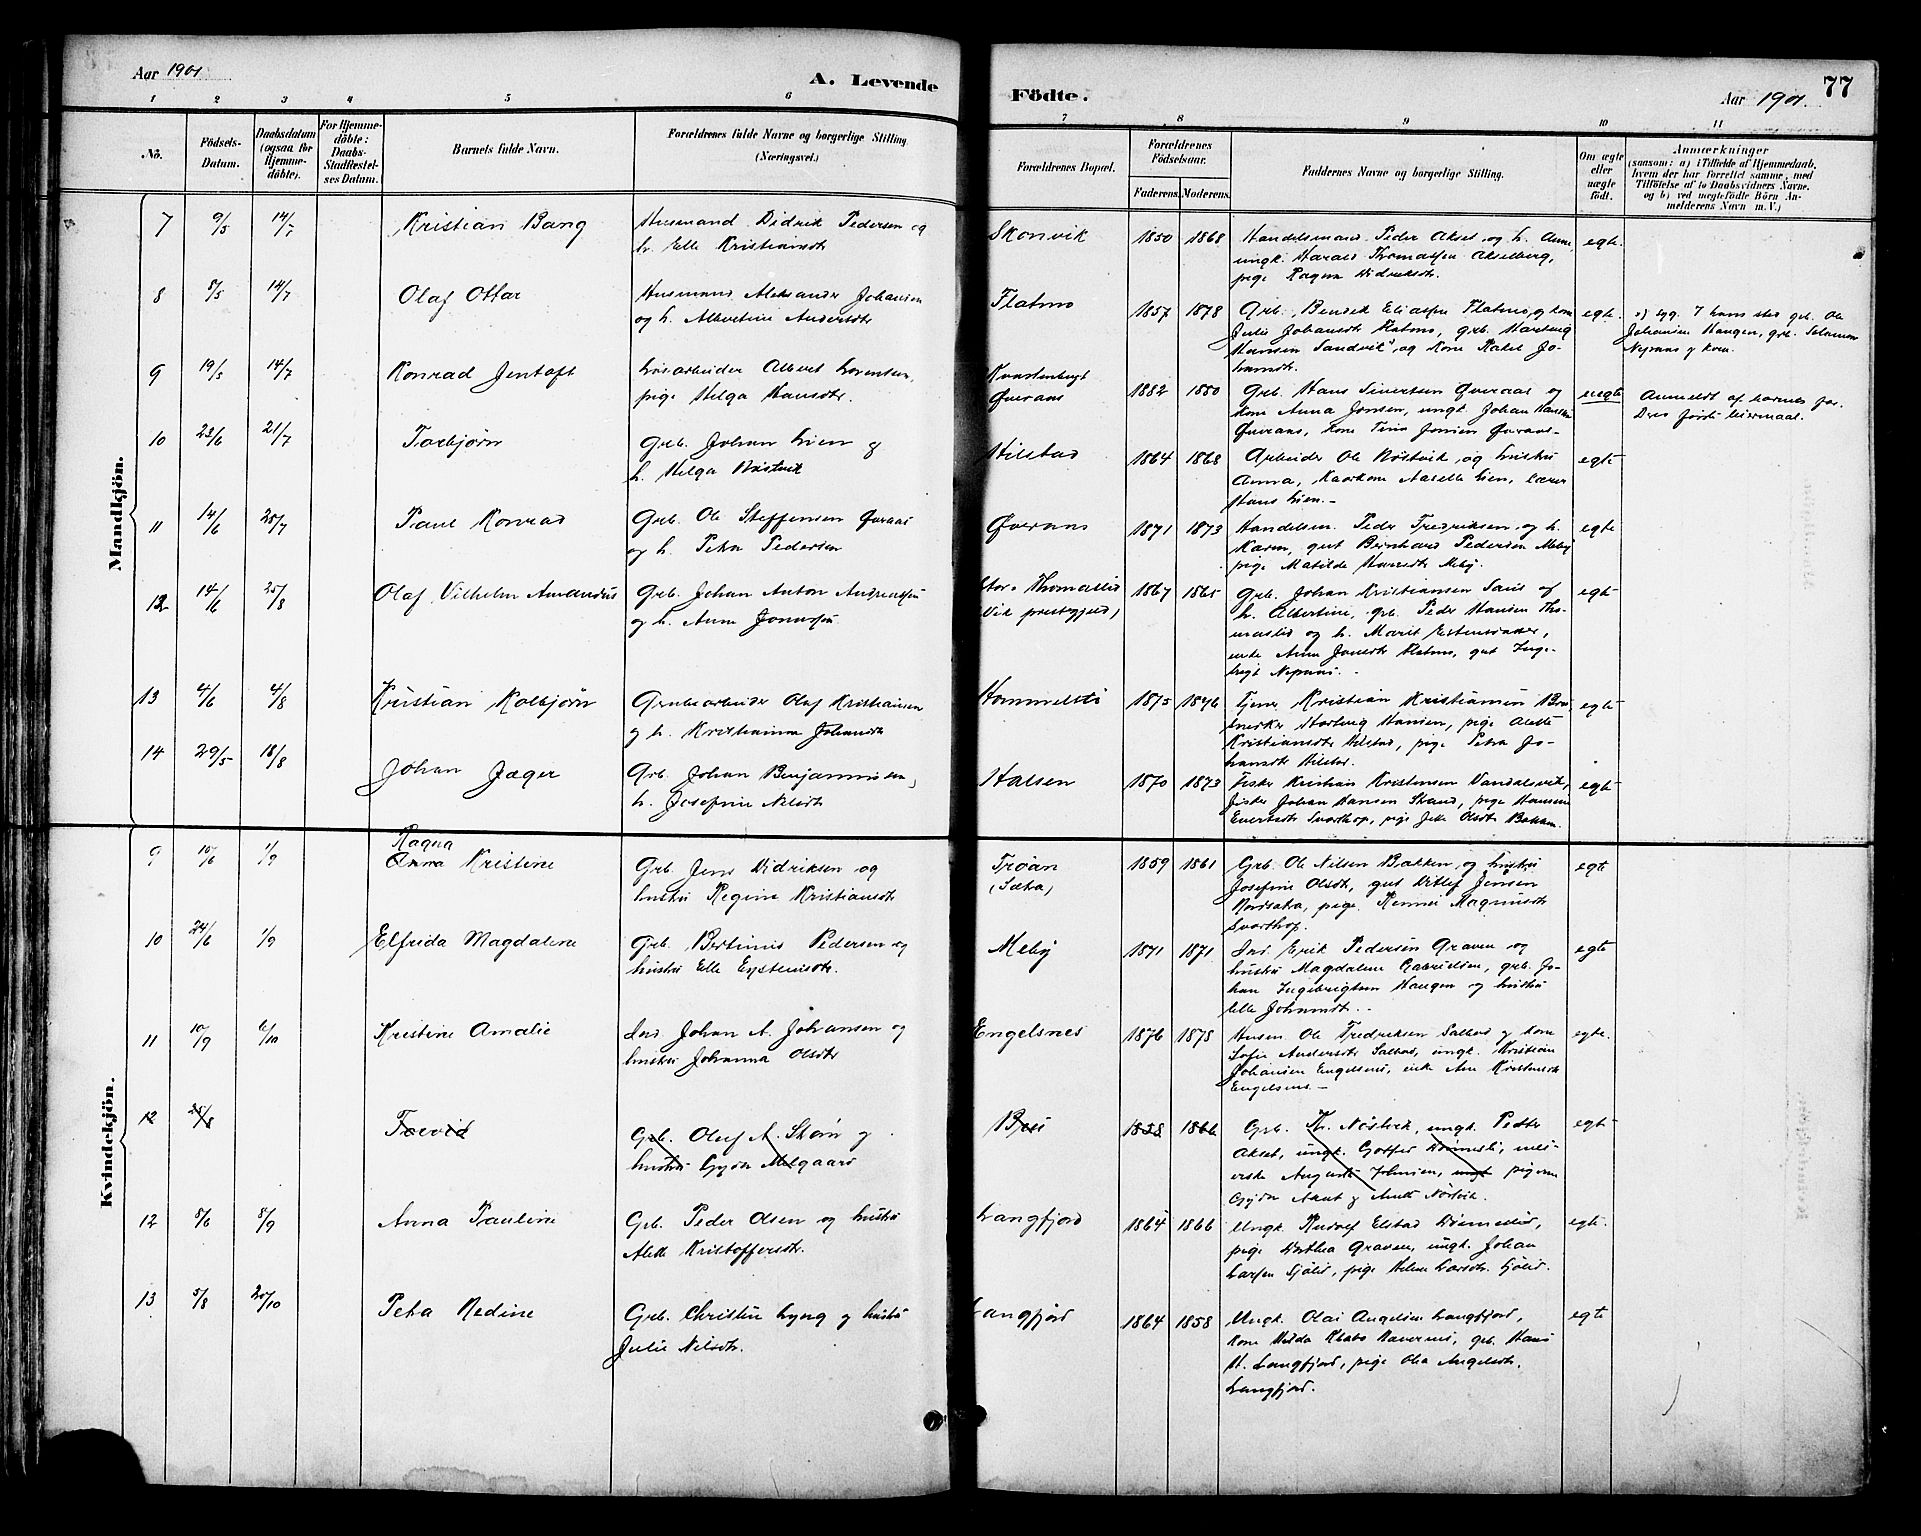 Aar 1901
A. Levende
Födte.
Aar 1901.
77
1 2 3 4 5 6 7 8 9 10 11
No.
Födsels-Datum.
Daabsdatum (ogsaa for Hjemmedöbte).
For Hjemmedöbte: Daabs-Stadfestelses Datum.
Barnets fulde Navn.
Forældrenes fulde Navne og borgerlige Stilling (Næringsvei.)
Forældrenes Bopæl.
Forældrenes Födselsaar.
Faderens. Moderens.
Faddernes Navne og borgerlige Stilling.
Om ægte eller uægte födt.
Anmærkninger
(saasom: a) i Tilfælde af Hjemmedaab,
hvem der har forrettet samme, med
Tilföielse af to Daabsvidners Navne,
og b) ved uægtefödte Börn An-
melderens Navn m. V.)
Mandkjön.
7 9/5 14/7 Kristian Bang
Husmand Didrik Pedersen og
h. Elle Kristiansdt
Skonvik 1850 1868
Handelsmand Peder Akset og h. Anne,
ungk. Harald Thomassen Akselberg,
pige Ragna Didriksdt.
egte.
8 5/5 14/7 Olaf Ottar
Husmand Aleksander Johansen
og h. Albertine Andersdtr
Flatmo 1857 1878
Grb. Bendik Eliassen Flatmo og kone
Julie Johansdt Flatmo, grb. Hartvig
Hansen Sandvik, og kone Rakel Jo-
hansdt.
egte.
Johansen Haugen, grb. Salamon
9 19/5 14/7 Konrad Jentoft
Løsarbeider Albert Lorentsen,
pige Helga Hansdtr.
Øveraas 1882 1880
Grb. Hans Sivertsen Øveraas og
kone Anna Jonsen, ungk. Johan Hansen
Øveraas, kone Tina Jonsen Øveraas-
uegte
Anmeldt af barnets far.
Deres første leiermaal.
10 23/6 21/7 Torbjørn
Grb. Johan Lien og
h. Helga Nøstvik
Hilstad 1864 1868
Arbeider Ole Nøstvik og hustru
Anna, Lien, Lærer
Hans Lien.-
egte
11 14/6 25/7 Paul Konrad
Grb. Ole Steffensen Øveraas
og h. Petra Pedersen
Øveraas 1871 1873
Handelsm. Peder Fredriksen og h.
Karen, gut Bernhard Pedersen Meby
pige Matilde Meby.
egte
12 14/6 25/8 Olaf Vilhelm Amandus
Grb. Johan Anton
og h. Anne
Vik prestegjeld) 1867 1865
Grb. Johan Kristiansen Saus
h. Albertine, grb. Peder Hansen Tho-
maslid og h. Marit
enke Anne Flatmo, gut Inge-
brigt
egte
13 4/6 4/8 Kristian Kolbjørn
Grubearbeider Olaf Kristiansen
og h. Kristianna Johansdt
1875 1876
Kristian Kristiansen
Hartvig Hansen, pige Alette
Kristiansdt Hilstad, pige Petra Jo-
hansdt Hilstad.
egte
14 29/5 18/8 Johan Jæger
Grb. Johan Benjaminsen,
h. Josefine Nilsdt
Halsen 1870 1873
Fisker Kristian Kristensen Vandalsvik,
fisker Johan Hansen Strand, pige Hansine
Evertsdt Svarthop, pige Olsdt Bakken
egte
Kvindekjön.
9 10/6 1/9 Ragna
Anna Kristine
Grb. Jens Didriksen og
hustru Regine Kristiansdt
Trøan
(Sætra) 1859 1861
Grb. Ole Nilsen Bakken og hustru
Josefine Olsdt, gut Ditlef Jensen
Nordsætra, pige Magnusdt
Svarthop.
egte
10 24/6 1/9 Elfrida Magdalene
Grb. Bertinus Pedersen og
hustru Elle Eystensdt.
Meby 1871 1871
Ind. Erik Pedersen Graven og
hustru Magdalene Gabrielsen, grb. Jo-
han Ingebrigtsen Haugen og hustru
Elle Johansdt.
egte
11 10/9 6/10 Kristine Amalie
Ind. Johan A. Johansen og
hustru Johanna Olsdtr
Engelsnes 1876 1878
Husm. Ole Fredriksen Salbod og kone
Sofie Andersdt Salbod, ungk. Kristian
Johansen Engelsnes, enke Ane Kristensdt
Engelsnes.-
egte.
12 25/8
Grb. Oluf A. Skorn og
hustru Gyda Melgaard
1858 1866
Grb. Kr. Nøstvik, ungk. Petter
Akset, ungk. mei-
erske Augusta Johnsen, ungk pigerne
Gyda Akset og Anette Nøstvik.
egte
12 5/6 8/9 Anna Pauline
Grb. Peder Olsen og hustru
Alette Kristoffersdt.
Langfjord 1864 1866
Ungk. Rudolf Elstad
pige Dorthea Graven, ungk. Johan
Larsen Sjølid, pige Helene Larsdtr. Sjølid.
egte.
13 5/8 20/10 Petra Nedine
Grb. Christen Lyng og hustru
Julie Nilsdtr.
Langfjord 1864 1858
Ungk. Olai Angelsen Langfjord,
kone Hilda grb. Hans
H. Langfjord, pige Olea Angelsdt.
Langfjord.
egte